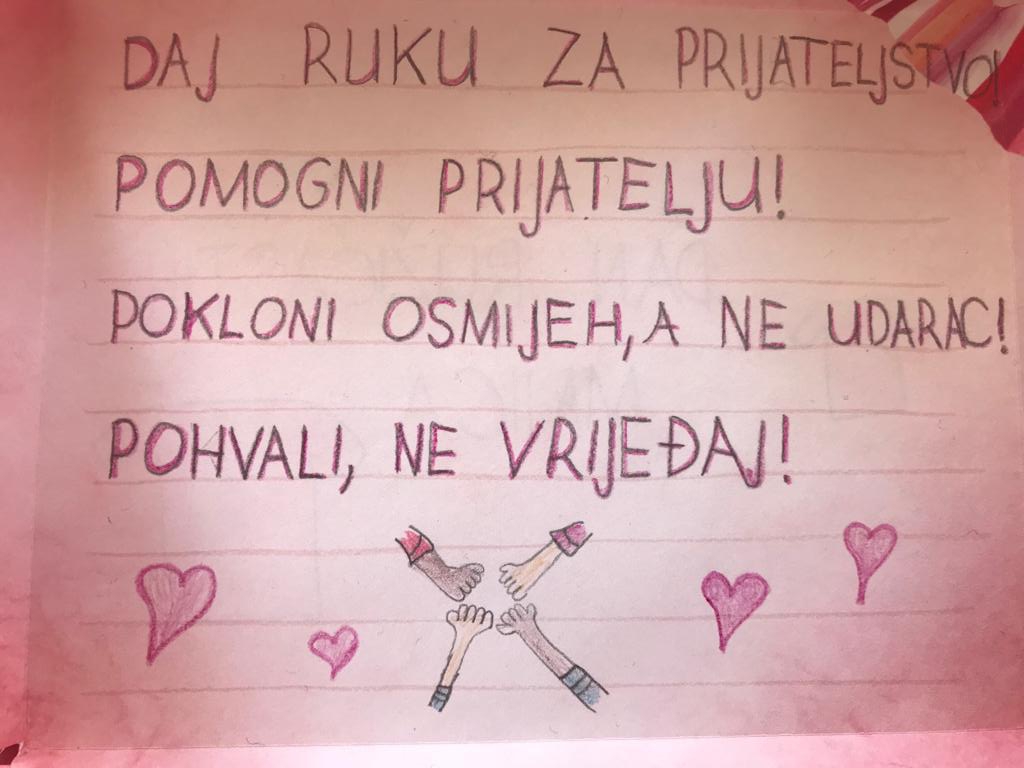 DAJ RUKU ZA PRIJATELJSTVO!
POMOGNI PRIJATELJU!
POKLONI OSMIJEH, A NE UDARAC!
POHVALI, NE VRIJEĐAJ!